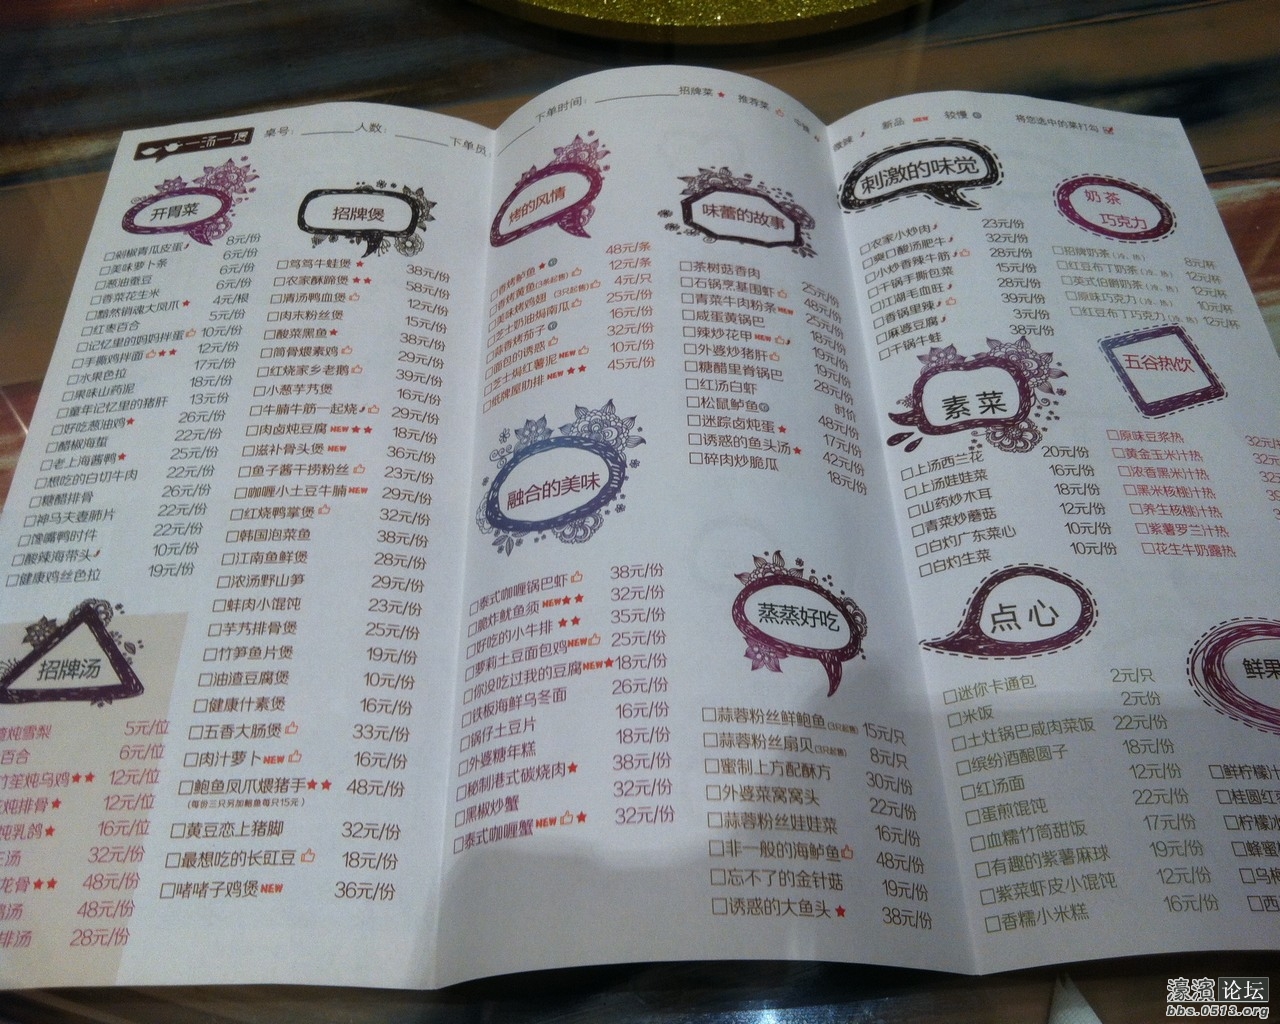 一汤一煲 桌号: 人数: 下单员: 下单时间: 招牌菜★ 推荐菜 微辣 新品NEW 较慢 将您选中的菜打勾
开胃菜
□剁椒青瓜皮蛋 8元/份
□美味萝卜条 6元/份
□葱油蚕豆 6元/份
□香菜花生米 6元/份
□黯然销魂大凤爪★ 4元/根
□红枣百合 5元/份
□记忆里的妈妈拌蛋 10元/份
□手撕鸡拌面★★ 12元/份
□水果色拉 17元/份
□果味山药泥 18元/份
□童年记忆里的猪肝 13元/份
□好吃葱油鸡★ 26元/份
□醋椒海蜇 22元/份
□老上海酱鸭★ 25元/份
□想吃的白切牛肉 22元/份
□糖醋排骨 26元/份
□神马夫妻肺片 22元/份
□馋嘴鸭时件 22元/份
□酸辣海带头 10元/份
□健康鸡丝色拉 19元/份
招牌汤
炖雪梨 5元/位
百合 6元/位
竹笙炖乌鸡★★ 12元/位
炖排骨★ 12元/位
炖乳鸽★ 16元/位
汤 32元/份
龙骨★★ 48元/份
汤 48元/份
排汤 28元/份
招牌煲
□笃笃牛蛙煲★ 38元/份
□农家酥蹄煲★★ 58元/份
□清汤鸭血煲 12元/份
□肉末粉丝煲 15元/份
□酸菜黑鱼★ 38元/份
□筒骨煨素鸡 29元/份
□红烧家乡老鹅 39元/份
□小葱芋艿煲 16元/份
□牛腩牛筋一起烧 29元/份
□肉卤炖豆腐NEW★★ 18元/份
□滋补骨头煲NEW 36元/份
□鱼子酱干捞粉丝 23元/份
□咖喱小土豆牛腩NEW 29元/份
□红烧鸭掌煲 32元/份
□韩国泡菜鱼 38元/份
□江南鱼鲜煲 28元/份
□浓汤野山笋 29元/份
□蚌肉小馄饨 23元/份
□芋艿排骨煲 25元/份
□竹笋鱼片煲 19元/份
□油渣豆腐煲 10元/份
□健康什素煲 16元/份
□五香大肠煲 33元/份
□肉汁萝卜NEW 16元/份
□鲍鱼凤爪煨猪手★★ 48元/份
(每份三只另加鲍鱼每只15元)
□黄豆恋上猪脚 32元/份
□最想吃的长豇豆 18元/份
□啫啫子鸡煲NEW 36元/份
烤的风情
□香烤鲈鱼★ 48元/条
□香烤黄鱼(3条起售) 12元/条
□美味烤鸡翅(3只起售) 4元/只
□芝士奶油焗南瓜 25元/份
□蒜香烤茄子 16元/份
□面包的诱惑 32元/份
□芝士焗红薯泥NEW 10元/份
□纸牌屋肋排NEW★★ 45元/份
融合的美味
□泰式咖喱锅巴虾 38元/份
□脆炸鱿鱼须NEW★★ 32元/份
□好吃的小牛排★★ 35元/份
□萝莉土豆面包鸡NEW 25元/份
□你没吃过我的豆腐NEW★ 18元/份
□铁板海鲜乌冬面 26元/份
□锅仔土豆片 16元/份
□外婆糖年糕 18元/份
□秘制港式碳烧肉★ 38元/份
□黑椒炒蟹 32元/份
□泰式咖喱蟹NEW★ 32元/份
味蕾的故事
□茶树菇香肉 25元/份
□石锅烹基围虾 48元/份
□青菜牛肉粉条NEW 25元/份
□咸蛋黄锅巴 18元/份
□辣炒花甲NEW 18元/份
□外婆炒猪肝 19元/份
□糖醋里脊锅巴 19元/份
□红汤白虾 28元/份
□松鼠鲈鱼 时价
□迷踪卤炖蛋★ 48元/份
□诱惑的鱼头汤★ 17元/份
□碎肉炒脆瓜 42元/份
18元/份
蒸蒸好吃
□蒜蓉粉丝鲜鲍鱼(3只起售) 15元/只
□蒜蓉粉丝扇贝(3只起售) 8元/只
□蜜制上方配酥方 30元/份
□外婆菜窝窝头 22元/份
□蒜蓉粉丝娃娃菜 16元/份
□非一般的海鲈鱼 48元/份
□忘不了的金针菇 19元/份
□诱惑的大鱼头★ 38元/份
刺激的味觉
□农家小炒肉 23元/份
□爽口酸汤肥牛 32元/份
□小炒香辣牛筋 28元/份
□干锅手撕包菜 15元/份
□江湖毛血旺 28元/份
□香锅里辣 39元/份
□麻婆豆腐 3元/份
□干锅牛蛙 38元/份
素菜
□上汤西兰花 20元/份
□上汤娃娃菜 16元/份
□山药炒木耳 18元/份
□青菜炒蘑菇 12元/份
□白灼广东菜心 10元/份
□白灼生菜 10元/份
点心
□迷你卡通包 2元/只
□米饭 2元/份
□土灶锅巴咸肉菜饭 22元/份
□缤纷酒酿圆子 18元/份
□红汤面 12元/份
□蛋煎馄饨 22元/份
□血糯竹筒甜饭 17元/份
□有趣的紫薯麻球 19元/份
□紫菜虾皮小馄饨 12元/份
□香糯小米糕 16元/份
奶茶
巧克力
□招牌奶茶(冷、热) 8元/杯
□红豆布丁奶茶(冷、热) 12元/杯
□英式伯爵奶茶(冷、热) 10元/杯
□原味巧克力(冷、热) 10元/杯
□红豆布丁巧克力(冷、热) 12元/杯
五谷热饮
□原味豆浆热 32元
□黄金玉米汁热 32元
□浓香黑米汁热
□黑米核桃汁热
□养生核桃汁热
□紫薯罗兰汁热
□花生牛奶露热
鲜果
□鲜柠檬汁
□桂圆红枣
□柠檬冰
□蜂蜜
□乌梅
□西
濠滨论坛
bbs.0513.org